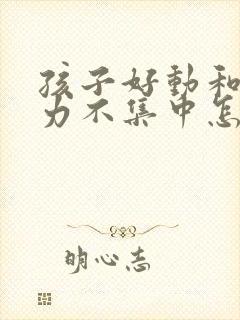 孩子好動和
力不集中怎
明心志